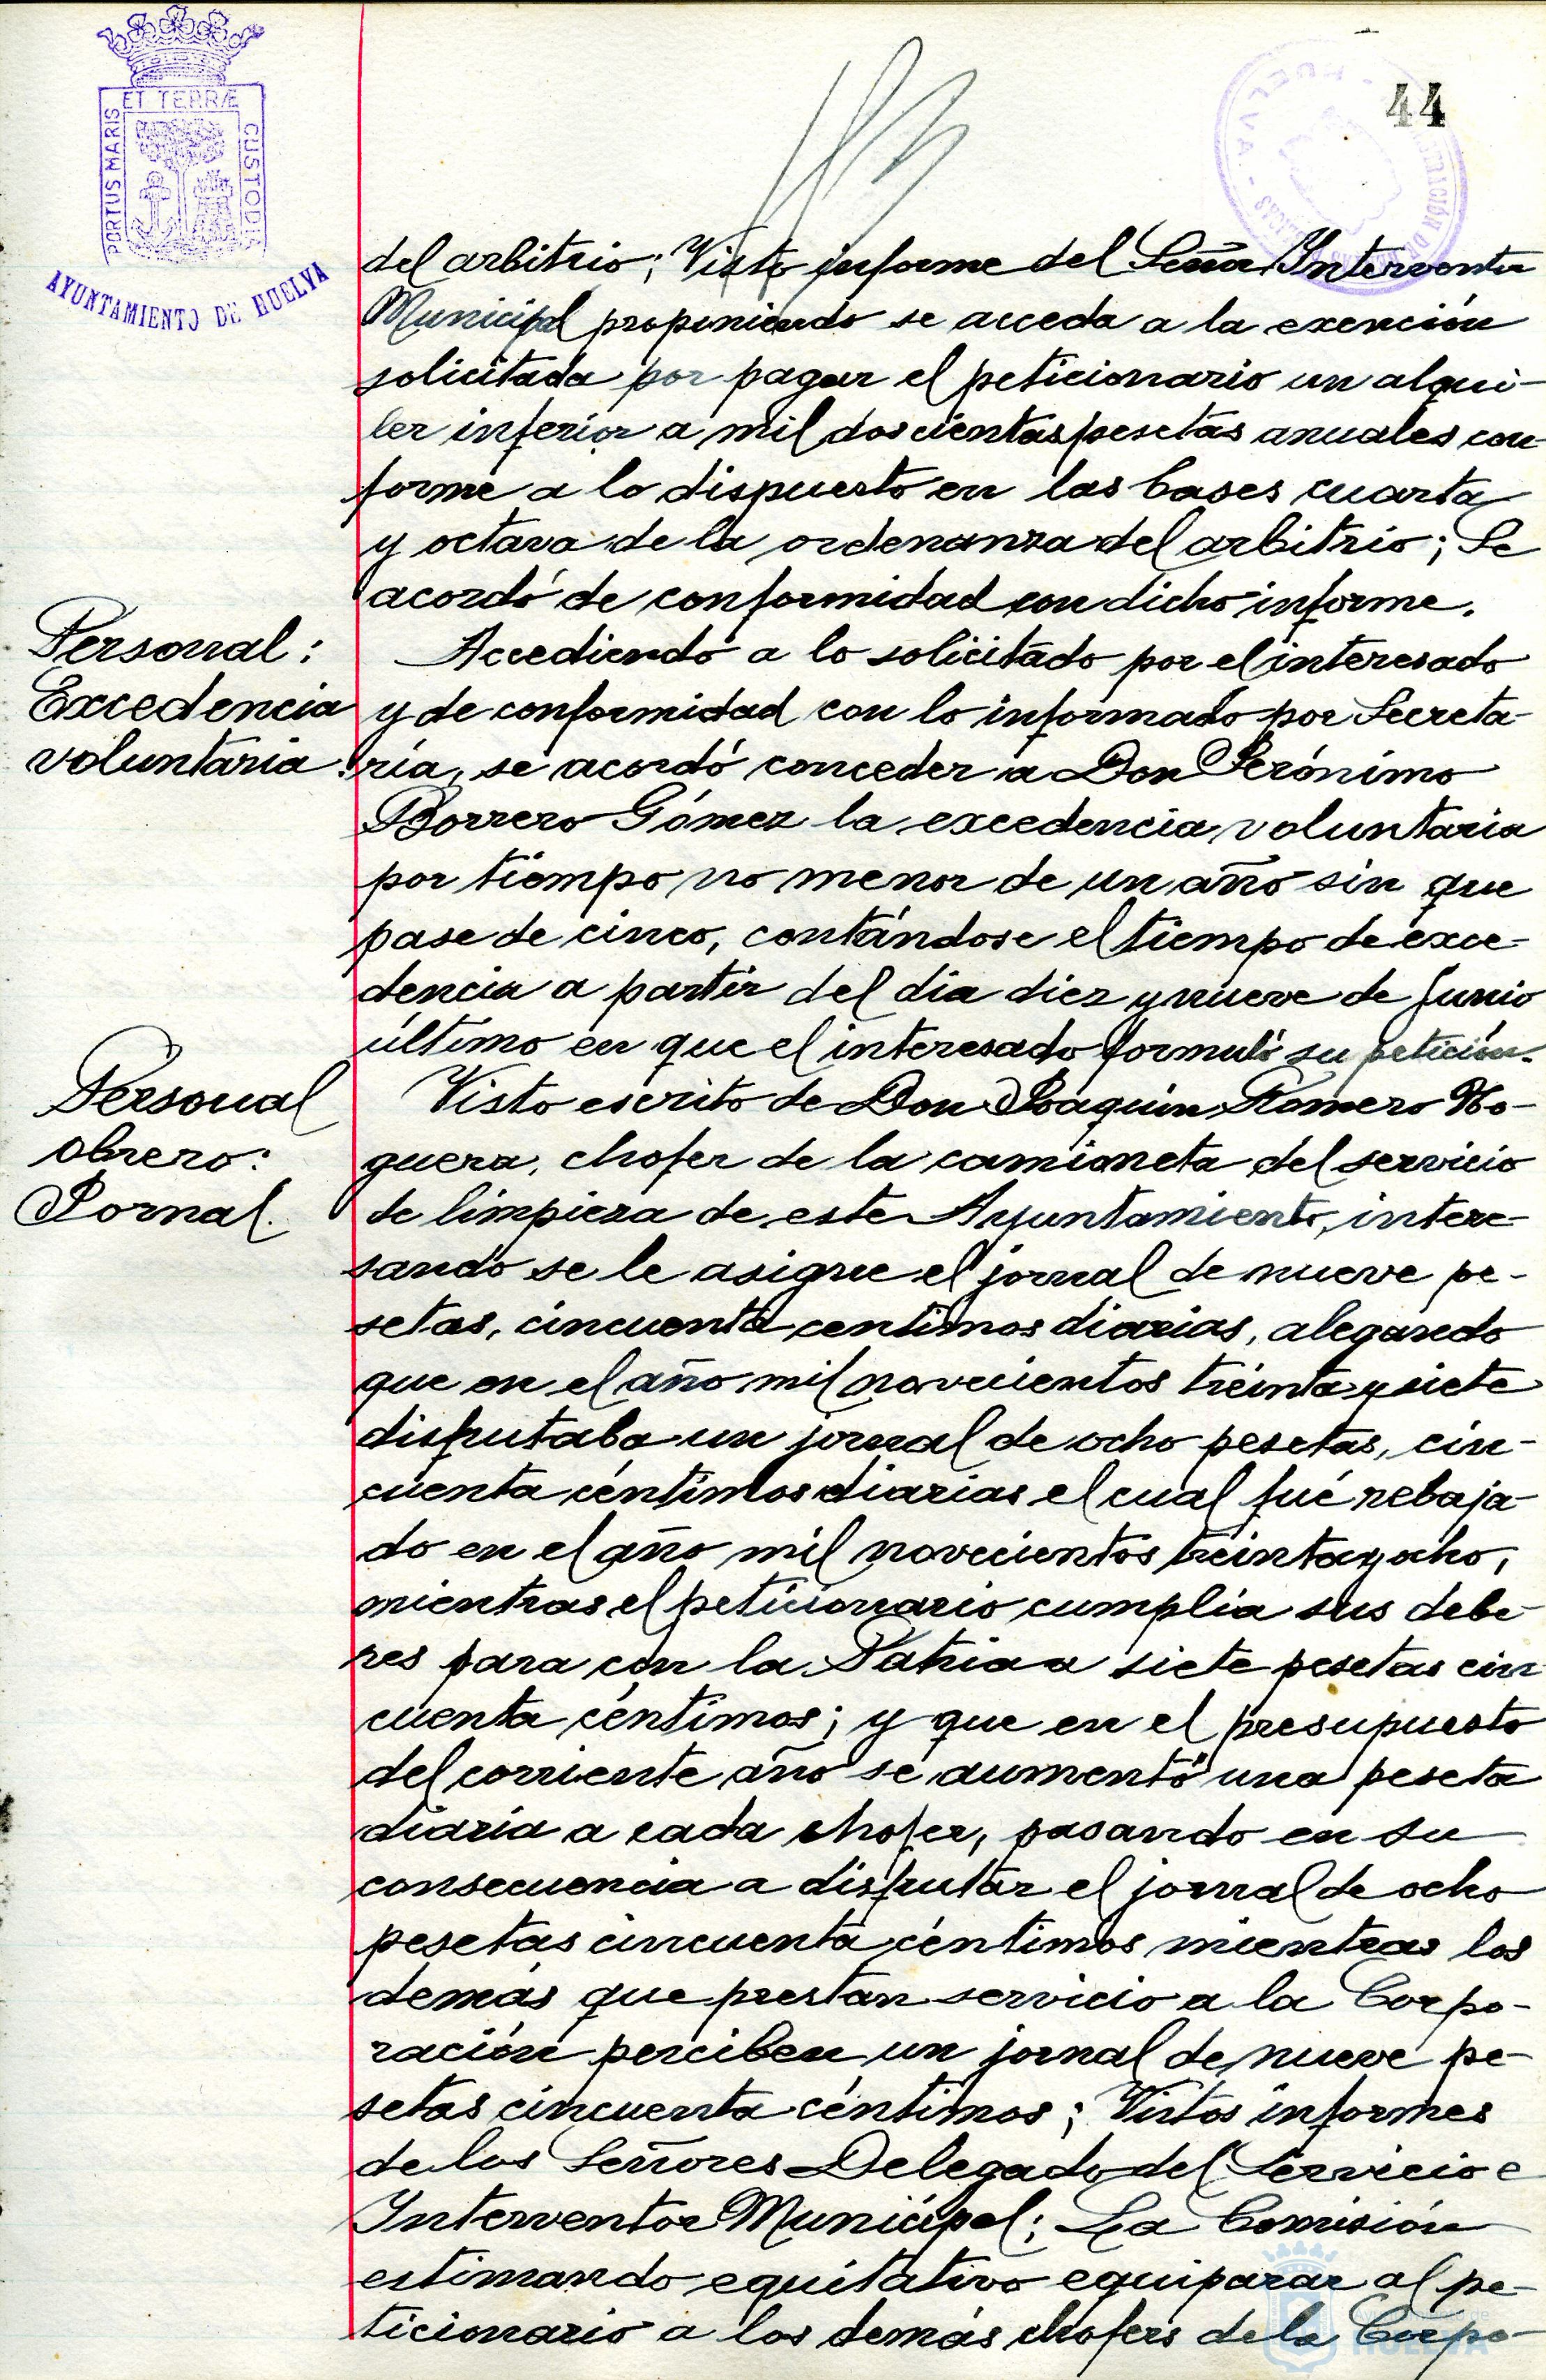 44
PORTUS MARIS
ET TERRÆ
CUSTODIA
AYUNTAMIENTO DE HUELVA
del arbitrio; Visto informe del Señor Interventor
Municipal proponiendo se acceda a la exención
solicitada por pagar el peticionario un alqui-
ler inferior a mil doscientas pesetas anuales con-
forme a lo dispuesto en las bases cuarta
y octava de la ordenanza del arbitrio; Se
acordó de conformidad con dicho informe.
Personal:
Excedencia
voluntaria.
Accediendo a lo solicitado por el interesado
y de conformidad con lo informado por Secreta-
ría, se acordó conceder a Don Jerónimo
Borrero Gómez la excedencia voluntaria
por tiempo no menor de un año sin que
pase de cinco, contándose el tiempo de exce-
dencia a partir del dia diez y nueve de Junio
último en que el interesado formuló su petición.
Personal
obrero:
Jornal.
Visto escrito de Don Joaquín Romero No-
guera, chofer de la camioneta del servicio
de limpieza de este Ayuntamiento, intere-
sando se le asigne el jornal de nueve pe-
setas, cincuenta centimos diarias, alegando
que en el año mil novecientos treinta y siete
disfrutaba un jornal de ocho pesetas, cin-
cuenta céntimos diarias el cual fué rebaja-
do en el año mil novecientos treinta y ocho,
mientras el peticionario cumplía sus debe-
res para con la Patria a siete pesetas cin-
cuenta céntimos; y que en el presupuesto
del corriente año se aumentó una peseta
diaria a cada chofer, pasando en su
consecuencia a disfrutar el jornal de ocho
pesetas cincuenta céntimos mientras los
demás que prestan servicio a la Corpo-
ración perciben un jornal de nueve pe-
setas cincuenta céntimos; Vistos informes
de los Señores Delegado del Servicio e
Interventor Municipal; La Comisión
estimando equitativo equiparar al pe-
ticionario a los demás chofers de la Corpo-
HUELVA